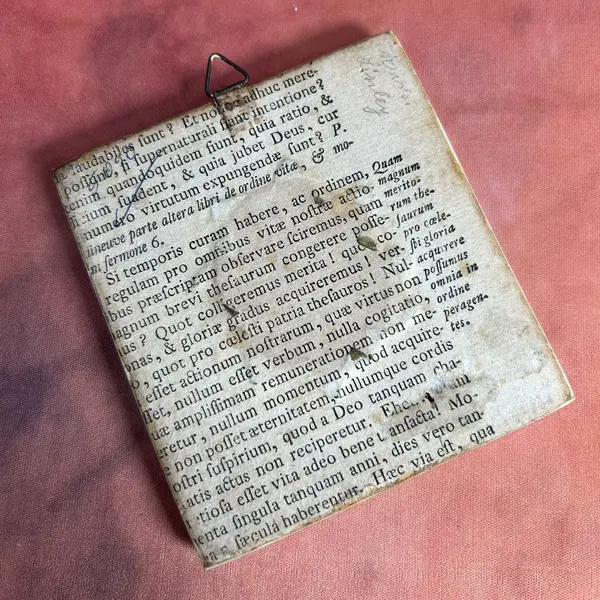 laudabiles ſunt? Et non adhuc mere-
poſſunt ſi ſupernaturali fiant intentione?
enim quandoquidem fiunt, quia ratio, &
cium ſuadent, & quia jubet Deus, cur
numero virtutum expungendæ ſunt? P.
uneuve parte altera libri de ordine vitæ, & mo-
ni ſermone 6.
Si temporis curam habere, ac ordinem,
regulam pro omnibus vitæ noſtræ actio-
bus præſcriptam obſervare ſciremus, quam
magnum brevi theſaurum congerere poſſe-
us? Quot colligeremus merita! quot co-
onas, & gloriæ gradus acquireremus! ver-
, quot pro cæleſti patria theſauros! Nul-
eſſet actionum noſtrarum, quæ virtus non
et, nullum eſſet verbum, nulla cogitatio,
uæ ampliſſimam remunerationem non me-
eretur, nullum momentum, quod acquire-
e non poſſet æternitatem, nullumque cordis
oſtri ſuſpirium, quod a Deo tanquam cha-
atis actus non reciperetur.
tioſa eſſet vita adeo bene tranſacta! Mo-
enta ſingula tanquam anni, dies vero tan-
ſæcula haberentur. Hæc via eſt, qua
Quam
magnum
merito-
rum the-
ſaurum
pro cæle-
ſti gloria
acquirere
poſſumus
omnia in
ordine
peragen-
tes.